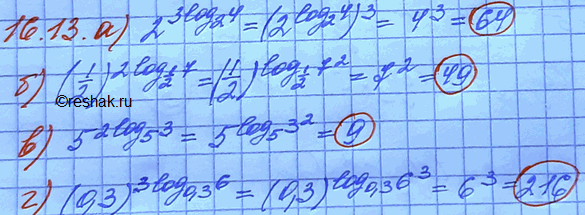 16.13. а) 2^(3log₂4) = (2^(log₂4))³ = 4³ = 64
б) (1/2)^(2log_(1/2)7) = (1/2)^(log_(1/2)7²) = 7² = 49
©reshak.ru
в) 5^(2log₅3) = 5^(log₅3²) = 9
г) (0,3)^(3log_(0,3)6) = (0,3)^(log_(0,3)6³) = 6³ = 216